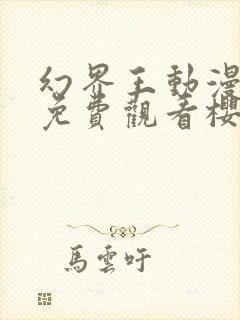 幻界王動漫
免費觀看櫻
馬雲吁